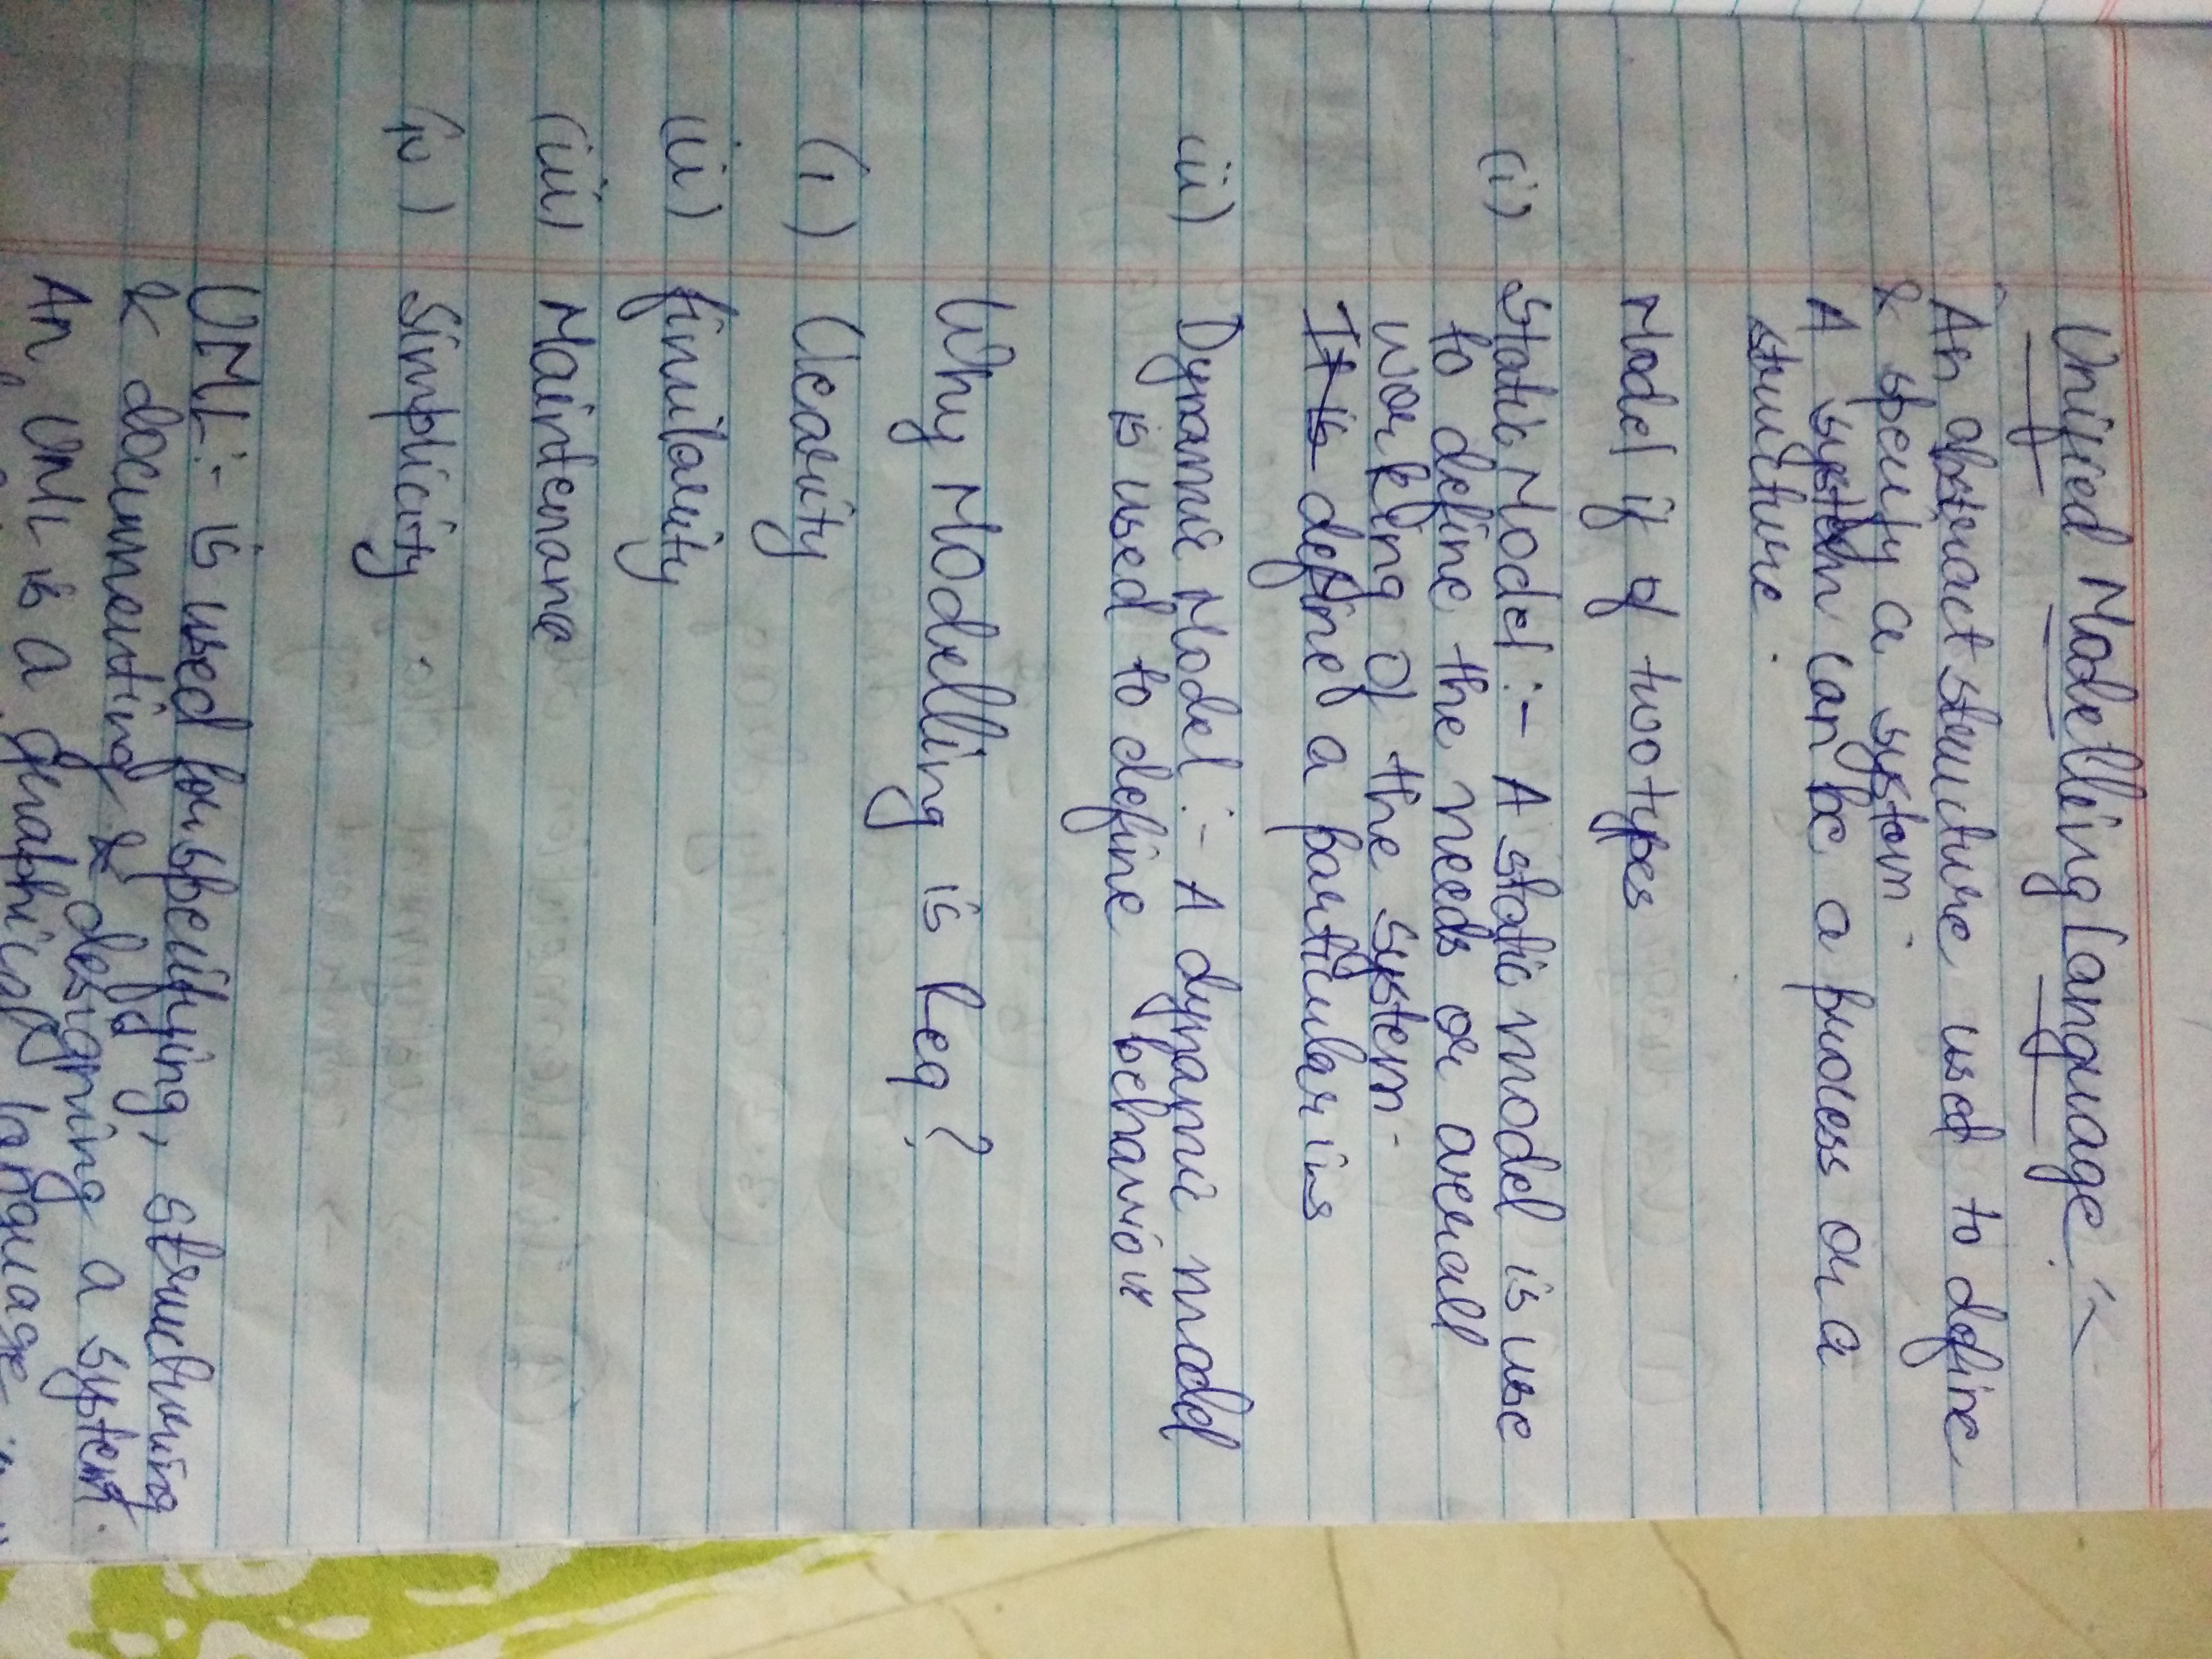 Unified Modelling Language :-
An abstract structure used to define
& specify a system.
A system can be a process or a
structure.
Model if of two types
(i) Static Model :- A static model is use
to define the needs or overall
working of the system.
It is define a particular is
ii) Dynamic Model :- A dynamic model
is used to define behavior
Why Modelling is Req?
(i) Clearity
(ii) finilarity
(iii) Maintenance
(iv) Simplicity
UML :- is used for specifying, structuring
& documenting & designing a system.
An UML is a graphical language